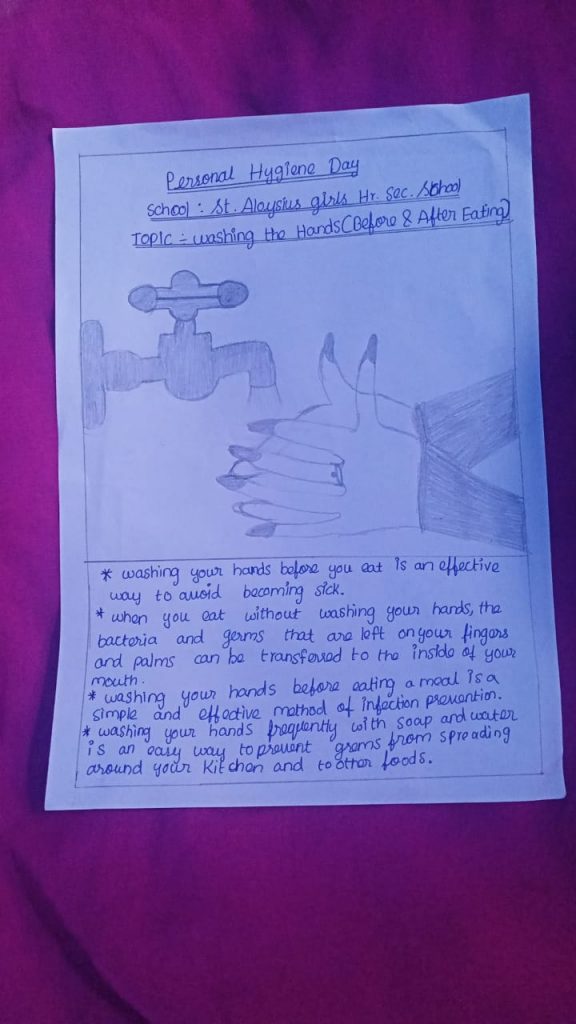 Personal Hygiene Day
School : St. Aloysius girls Hr. Sec. School
Topic :- washing the Hands(Before & After Eating)
* washing your hands before you eat is an effective
way to avoid becoming sick.
* when you eat without washing your hands, the
bacteria and germs that are left on your fingers
and palms can be transferred to the inside of your
mouth.
* washing your hands before eating a meal is a
simple and effective method of infection prevention.
* washing your hands frequently with soap and water
is an easy way to prevent grems from spreading
around your Kitchen and to other foods.